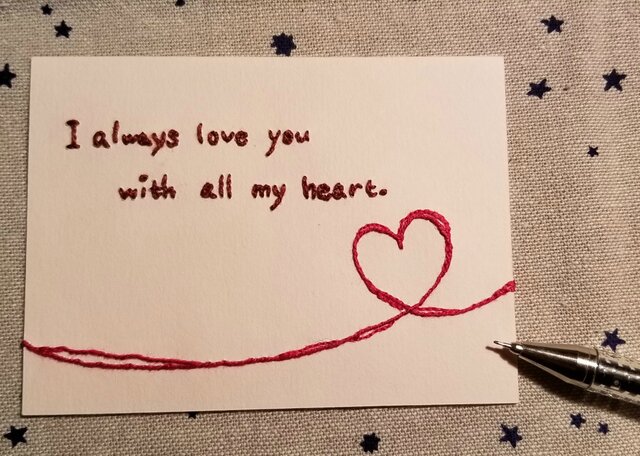 I always love you
with all my heart.